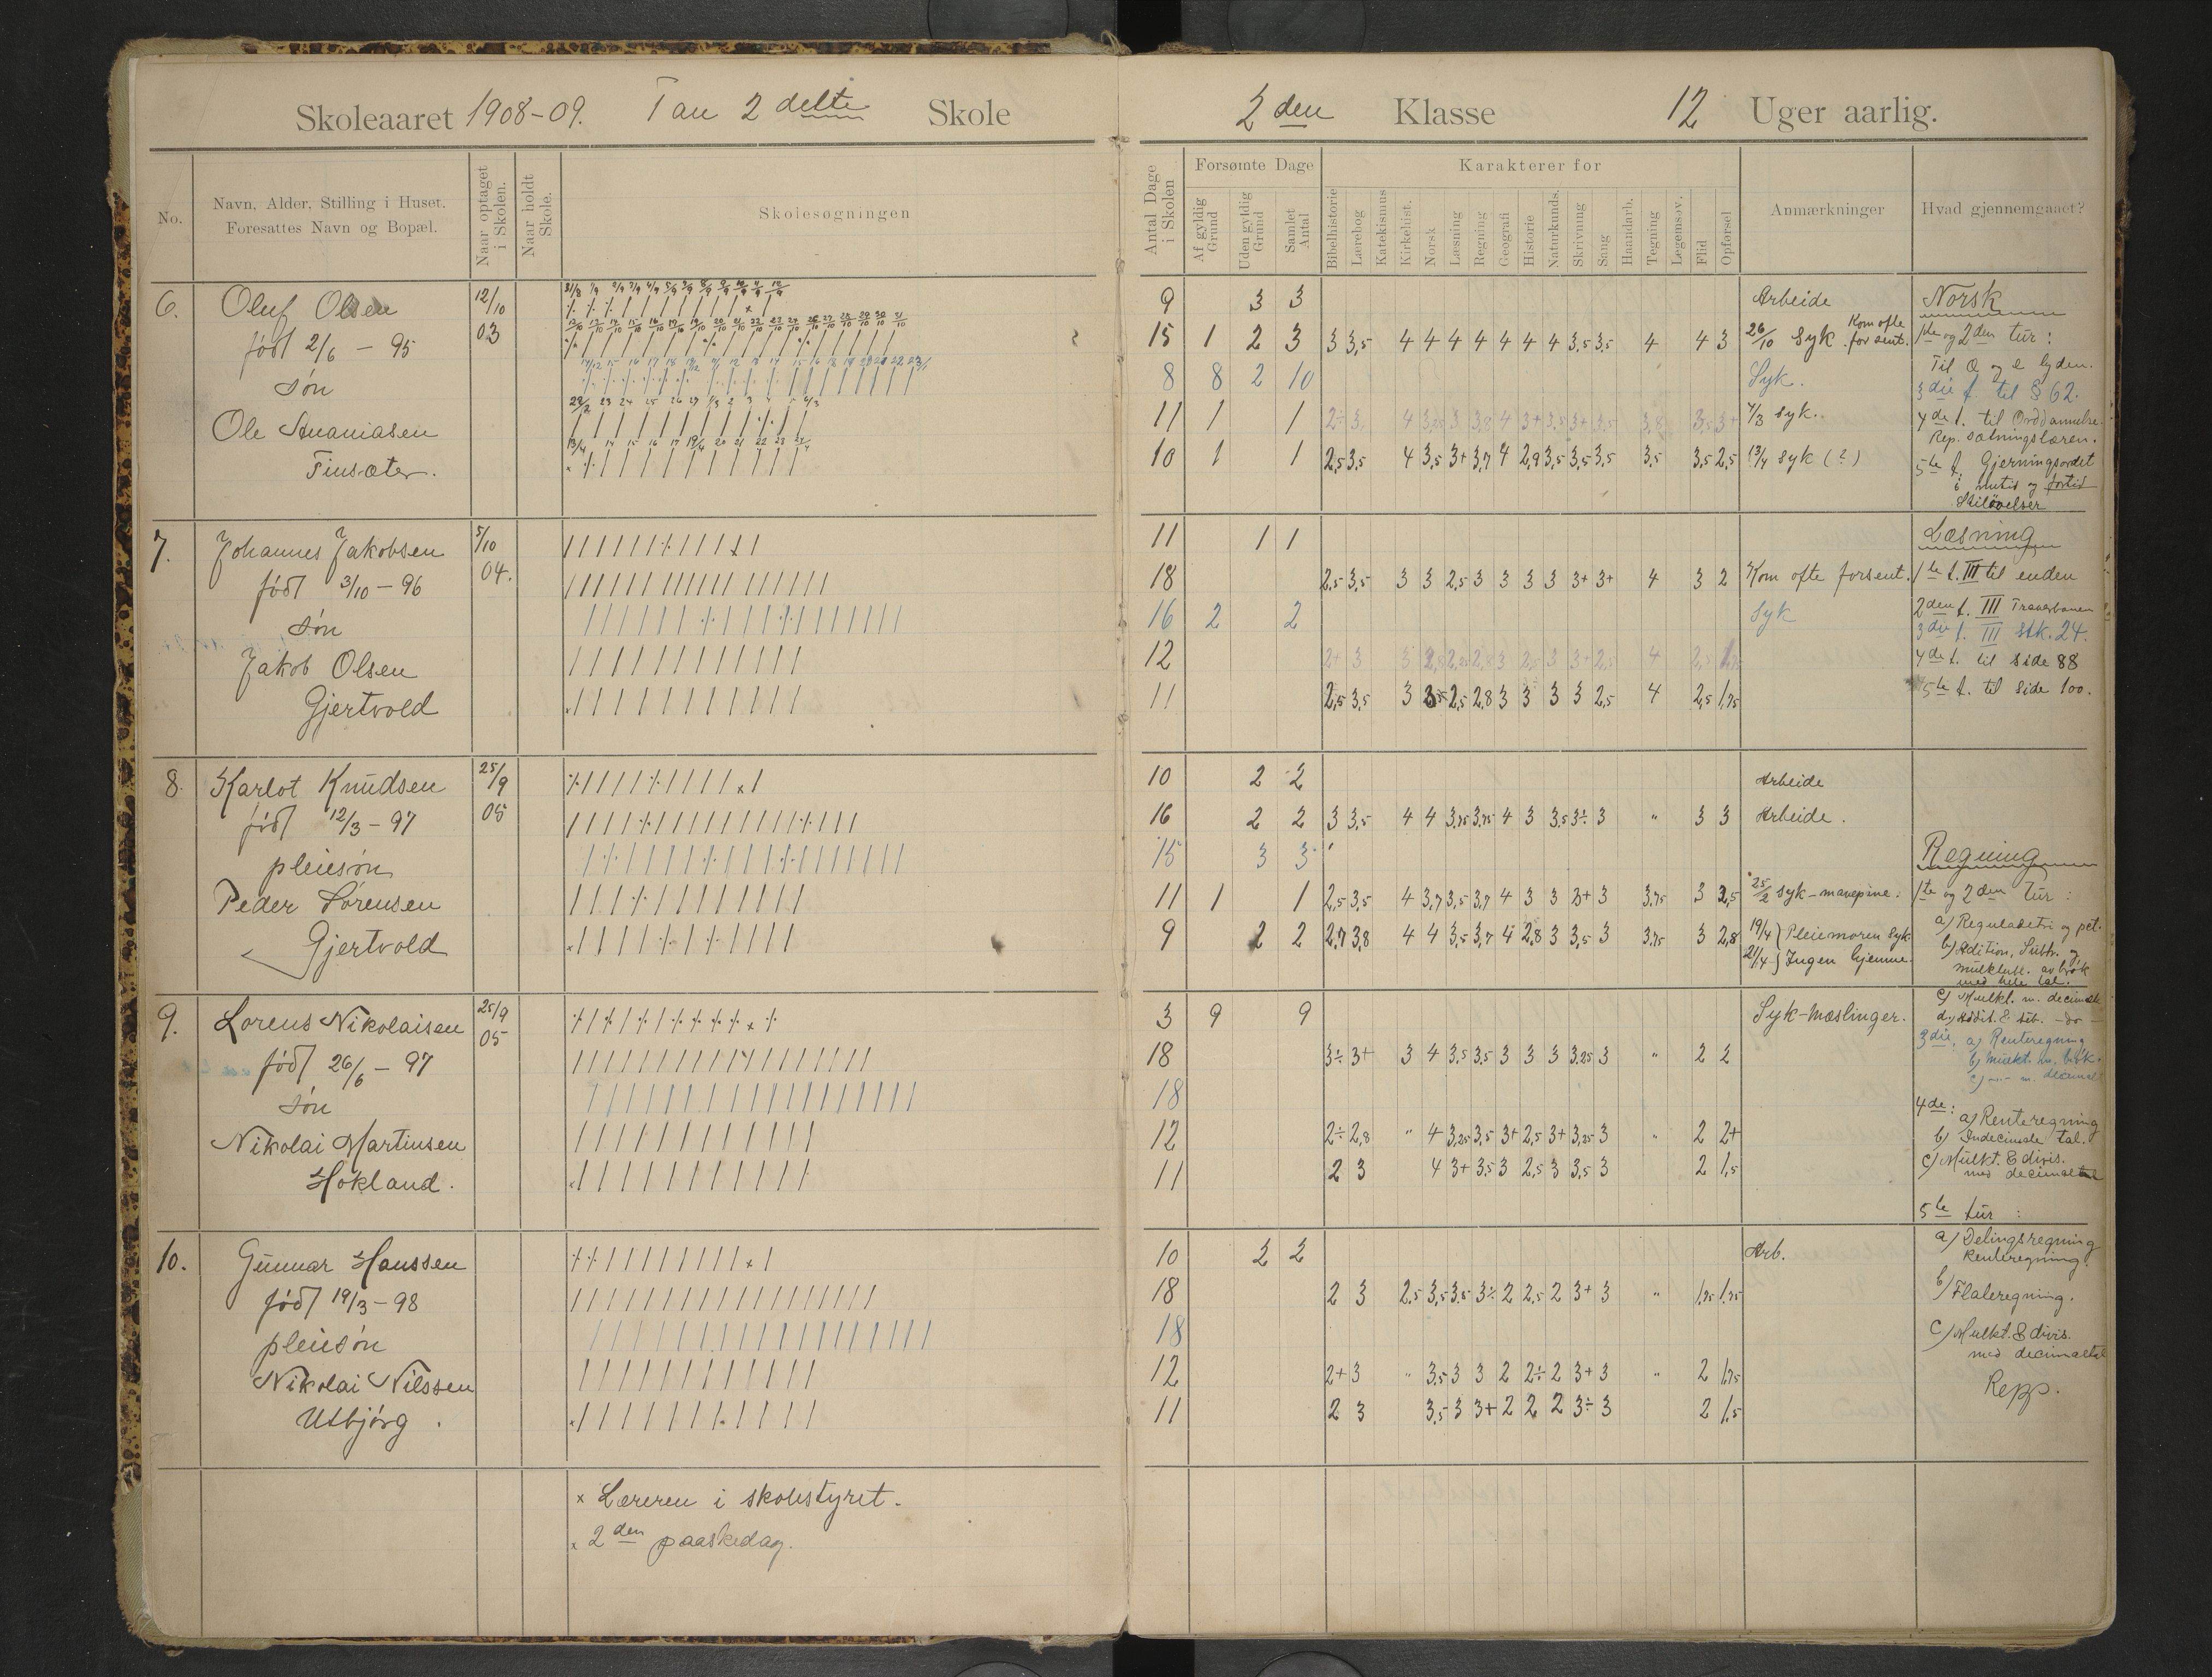 Skoleaaret 1908-09. Tan 2 delte Skole
No.
Navn, Alder, Stilling i Huset.
Foresattes Navn og Bopæl.
Naar optaget
i Skolen.
Naar holdt
Skole.
Skolesøgningen
6. Oluf Olsen 12/10
født 2/6 - 95 03
søn
Ole Ananiasen
Finsæter.
7. Johannes Jakobsen 5/10
født 3/10 - 96 04.
søn
Jakob Olsen
Gjertvold
8 Karlot Knudsen 25/9
født 12/3 - 97 05
pleiesøn
Peder Sørensen
Gjertvold
9. Lorens Nikolaisen 25/9
født 26/6 - 97 05
søn
Nikolai Martinsen
Hokland.
10. Gunnar Hanssen
født 19/3 - 98
pleiesøn
Nikolai Nilssen
Utbjørg.
x Læreren i skolestyret.
x 2den paaskedag.
2den Klasse 12 Uger aarlig.
Antal Dage
i Skolen
Forsømte Dage
Af gyldig
Grund
Uden gyldig
Grund
Samlet
Antal
Karakterer for
Bibelhistorie
Lærebog
Katekismus
Kirkehist.
Norsk
Læsning
Regning
Geografi
Historie
Naturkunds.
Skrivning
Sang
Haandarb.
Tegning
Legemsøv.
Flid
Opførsel
Anmærkninger
Hvad gjennemgaaet?
9 3 3 Arbeide
15 1 2 3 3 3,5 4 4 4 4 4 4 4 3,5 3,5 4 4 3 26/10 Syk. Kom ofte for sent.
8 8 2 10 Syk.
11 1 1 4/3 syk.
10 1 1 2,5 3,5 4 3,5 3+ 3,7 4 2,9 3,5 3,5 3,5 3,5 3,5 2,5 13/4 syk (?)
11 1 1
18 2,5 3,5 3 3 2,5 3 3 3 3 3+ 3+ 4 3 2 Kom ofte forsent.
16 2 2 Syk
12
11 2,5 3,5 3 2,5 2,8 3 3 3 3 2,5 4 2,5 1,75
10 2 2 Arbeide
16 2 2 3 3,5 4 4 3,75 3,75 4 3 3,5 3÷ 3 " 3 3 Arbeide.
15 3 3
11 1 1 2,5 3,5 4 3,7 3,5 3,7 4 3 3 3+ 3 3,75 3 2,5 25/2 syk - mavepine.
9 2 2 2,7 3,8 4 4 3,5 3,7 4 2,8 3 3,5 3 3,75 3 2,8 19/4 Pleiemoren syk
21/4 Ingen hjemme.
3 9 9 Syk - mæslinger.
18 3÷ 3+ 3 4 3,5 3,5 3 3 3 3,25 3 " 2 2
18
12 2÷ 2,8 " 4 3,25 3,5 3+ 2,5 3+ 3,25 3 " 2 2+
11 2 3 4 3+ 3,5 3 2,5 3 3,5 3 2 1,5
10 2 2 Arb.
18 2 3 2,5 3,5 3,5 3÷ 2 2,5 2 3+ 3 " 1,75 1,75
18
12 2+ 3 " 3,5 3 3 2 2÷ 2 3+ 3 " 2 1,75
11 2 3 3,5 3 3+ 2 2 2 3÷ 3 2 1,5
Norsk
1ste og 2den tur:
Til Q og e lyden.
3die t. til § 62.
4de t. til Orddannelse
Rep. sætningslæren.
5te t. Gjerningsordet
i nutid og fortid
Stiløvelser
Læsning
1te t. III til enden
2den t. III
3die t. III stk. 24.
4de t. til side 88
5te t. til side 100.
Regning
1te og 2den tur:
a) Reguladetri og pct.
b) Adition, Subtr. og
multipl. av brøk
med hele tal.
c) Multpl. m. decimale
d) Addit. & sub. - do -
3die. a) Renteregning
b) Multt. m. brøk.
c) -"- m. decimal
4de: a) Renteregning
b) Indecimale tal.
c) Multt. & divis.
med decimaltal
5te tur:
a) Delingsregning
Renteregning.
b) Flateregning.
c) Multt. & divis.
med decimaltal
Repp.